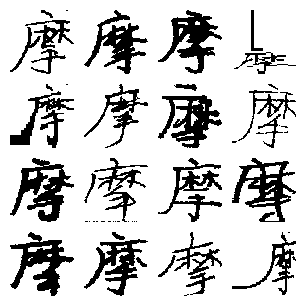 摩摩摩摩
摩摩摩摩
摩摩摩摩
摩摩摩摩